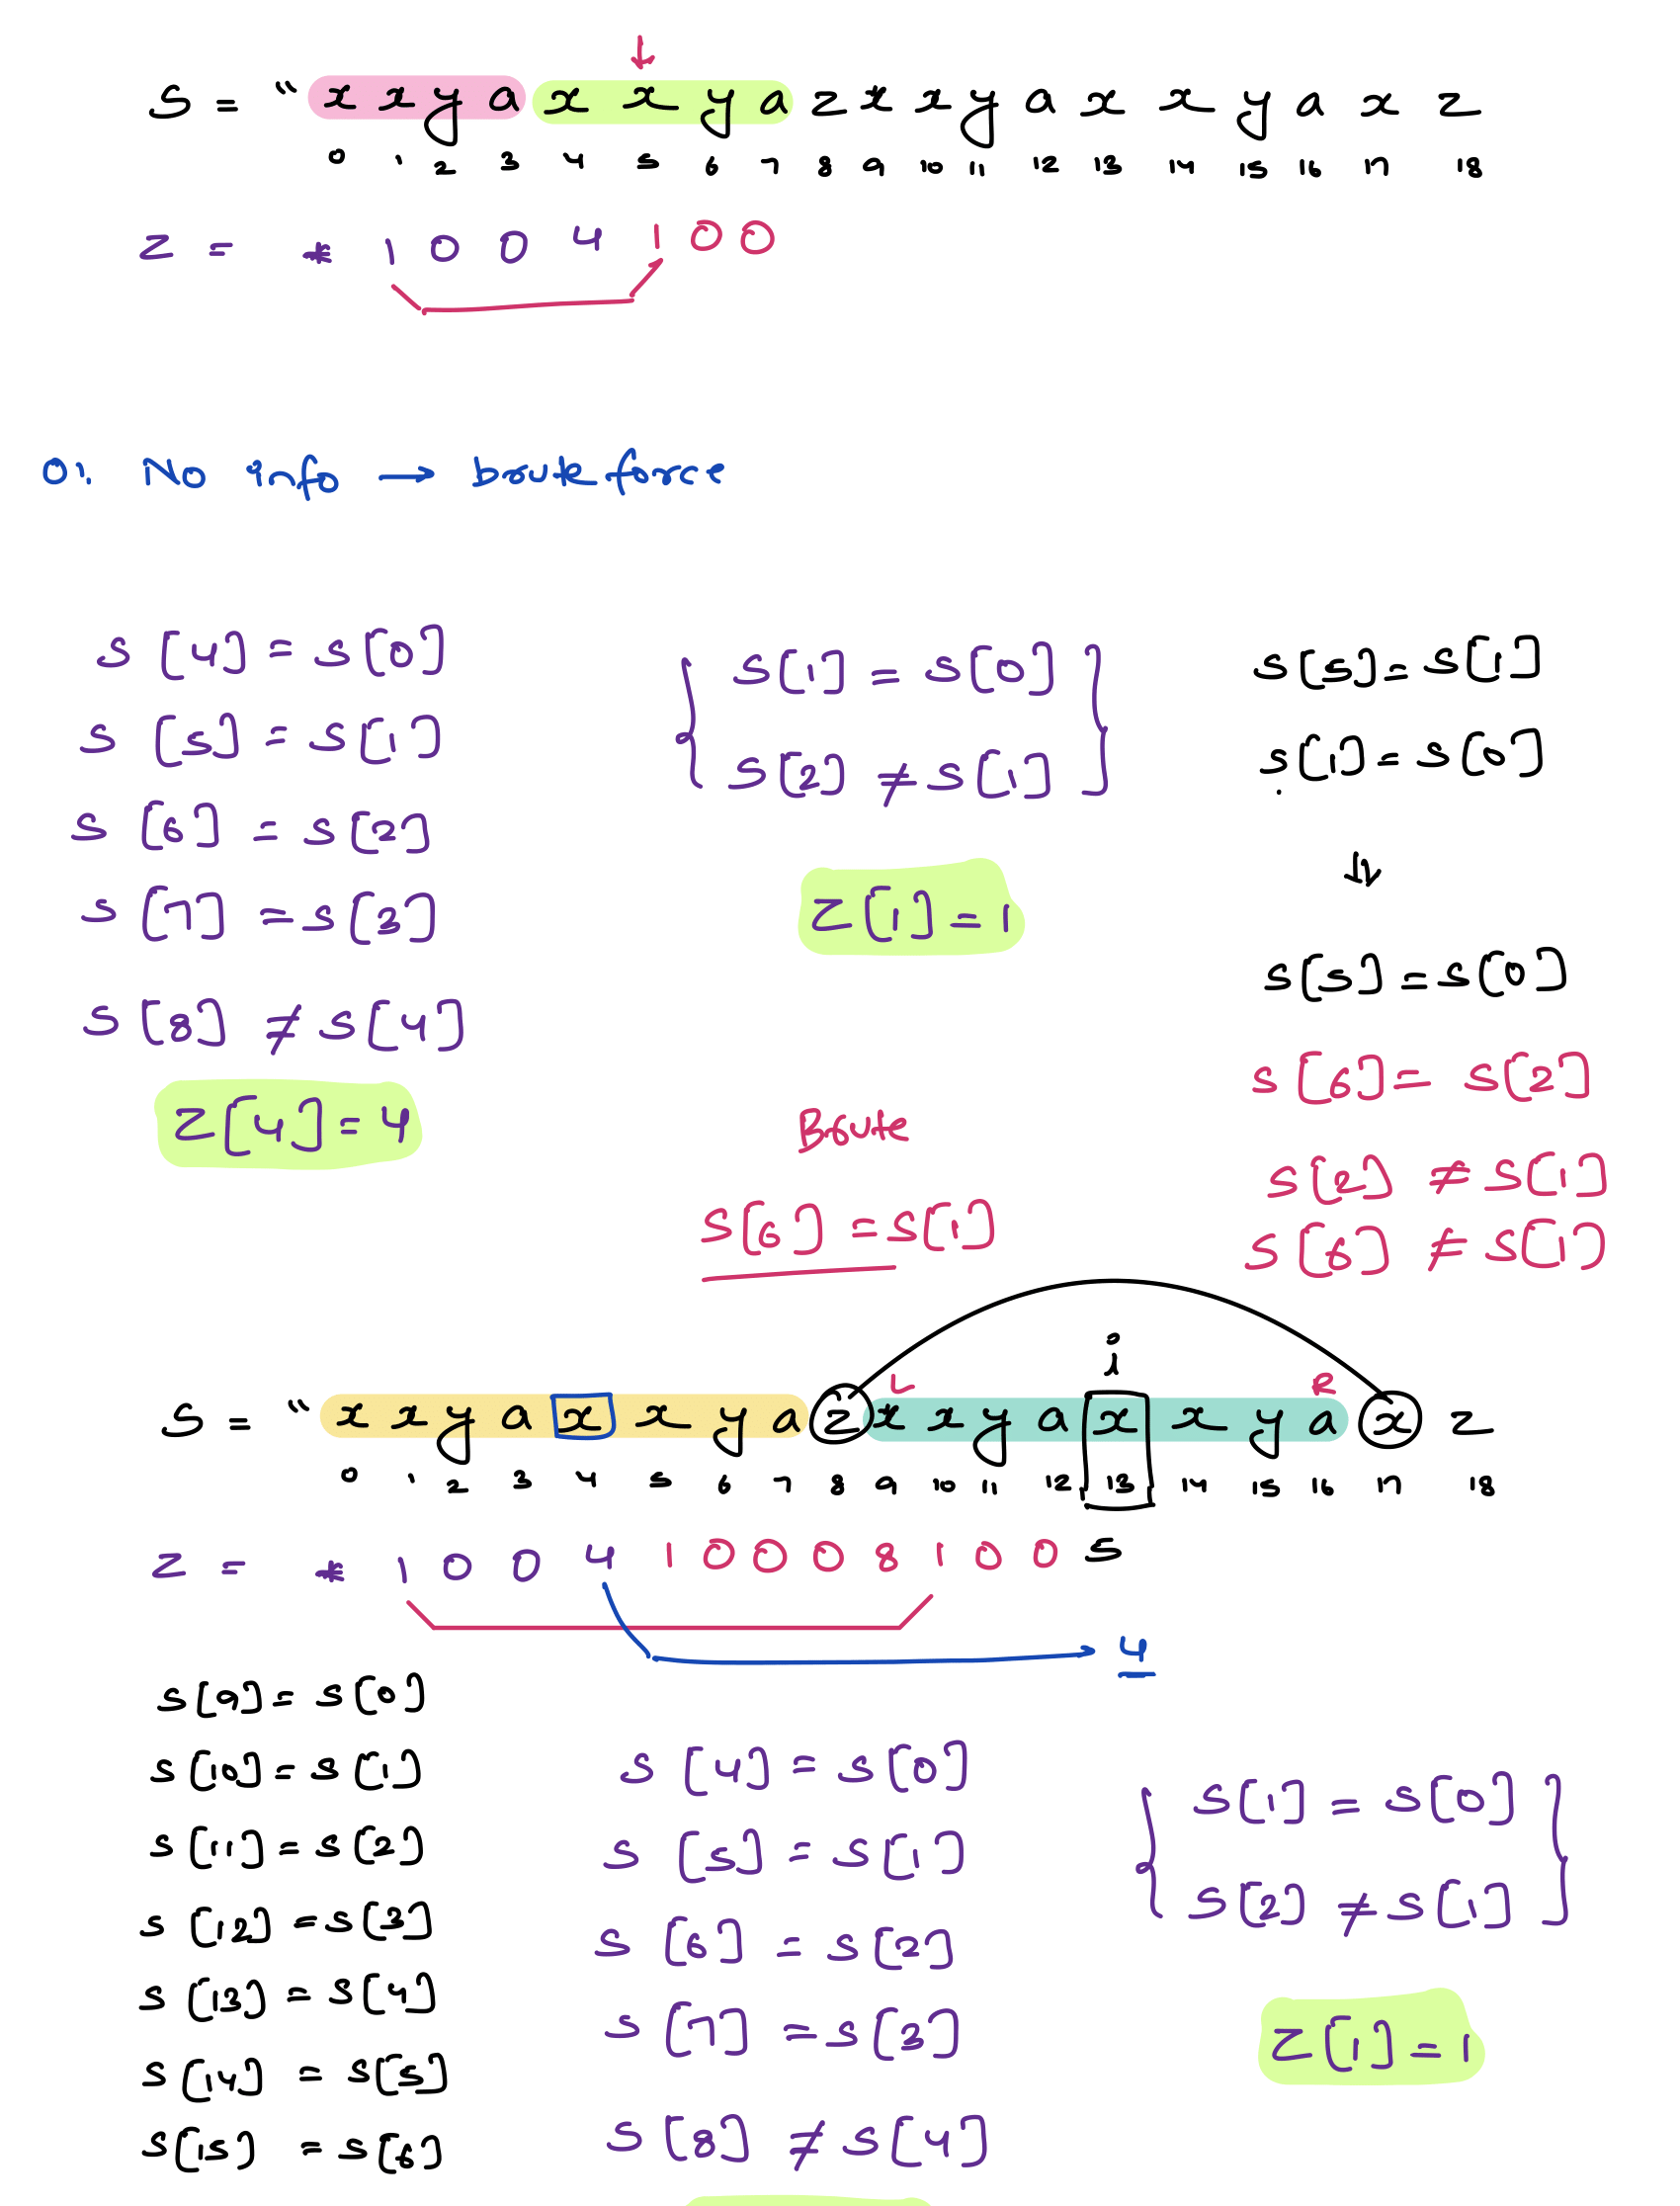 S = " x x y a x x y a z x x y a x x y a x z
0 1 2 3 4 5 6 7 8 9 10 11 12 13 14 15 16 17 18
Z = * 1 0 0 4 1 0 0
01. No info → brute force
S [4] = S[0]
S [5] = S[1]
S [6] = S[2]
S [7] = S[3]
S [8] ≠ S[4]
Z[4] = 4
{ S[1] = S[0]
S[2] ≠ S[1] }
Z[1] = 1
S[5] = S[1]
S[1] = S[0]
⇓
S[5] = S[0]
S[6] = S[2]
S[2] ≠ S[1]
S[6] ≠ S[1]
Brute
S[6] = S[1]
i
L R
S = " x x y a x x y a z x x y a x x y a x z
0 1 2 3 4 5 6 7 8 9 10 11 12 13 14 15 16 17 18
Z = * 1 0 0 4 1 0 0 0 8 1 0 0 5
4
S[9] = S[0]
S[10] = S[1]
S[11] = S[2]
S[12] = S[3]
S[13] = S[4]
S[14] = S[5]
S[15] = S[6]
S [4] = S[0]
S [5] = S[1]
S [6] = S[2]
S [7] = S[3]
S [8] ≠ S[4]
{ S[1] = S[0]
S[2] ≠ S[1] }
Z[1] = 1